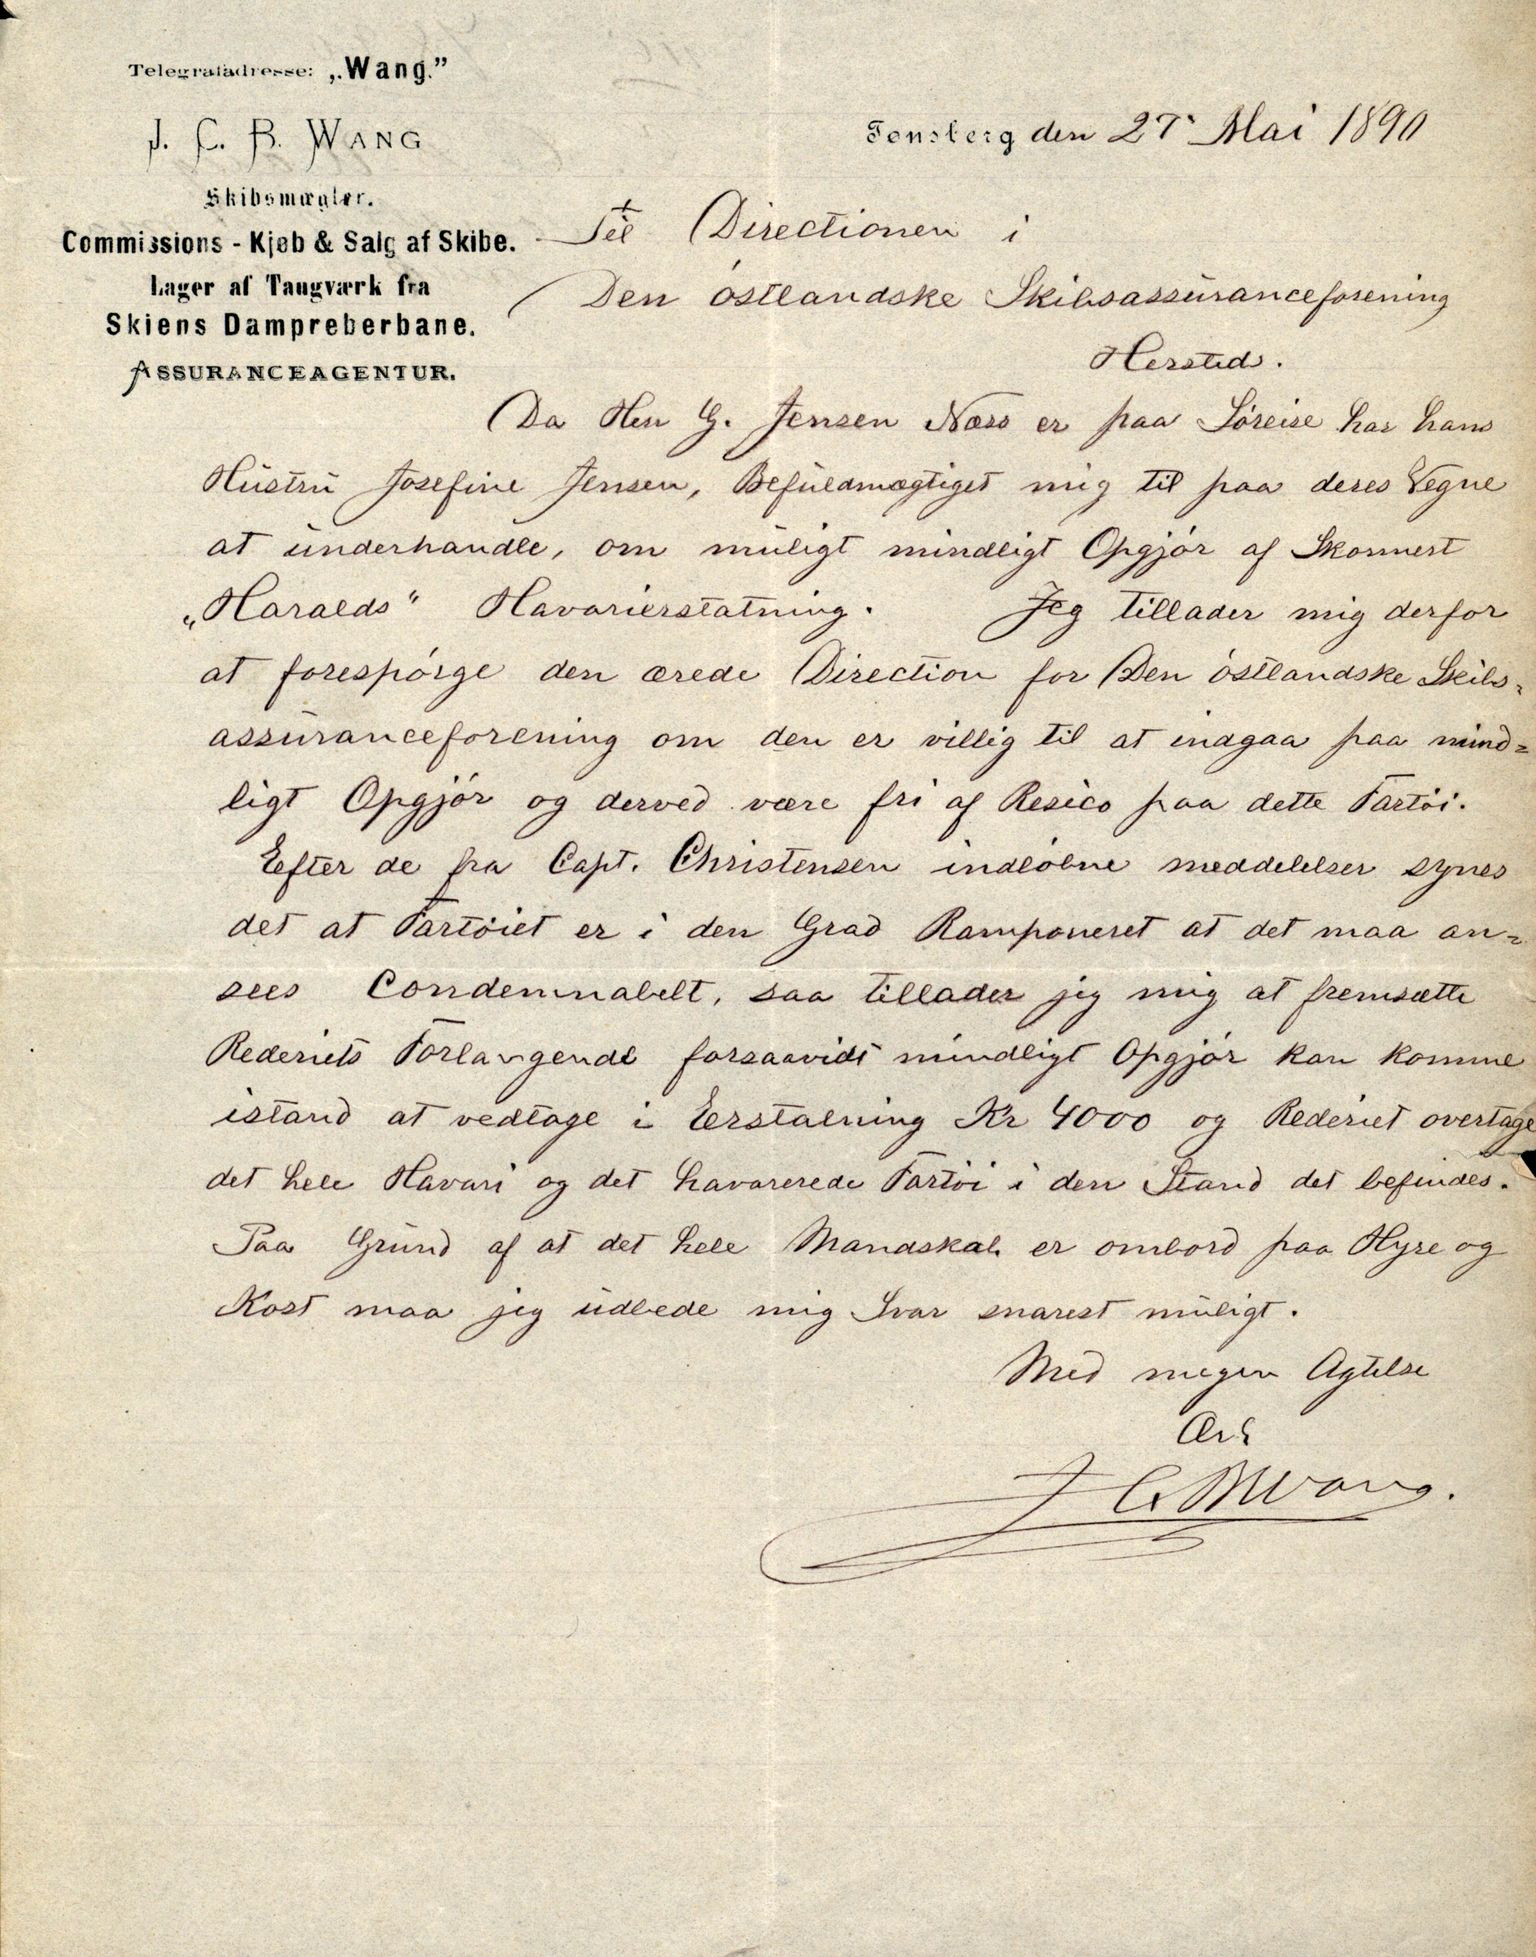 Telegrafadresse: „Wang."
J. C. B. WANG
Skibsmægler.
Commissions - Kjøb & Salg af Skibe.
Lager af Taugværk fra
Skiens Dampreberbane.
ASSURANCEAGENTUR.
Tønsberg den 27' Mai 1890
Til Directionen i
Den östlandske Skibsassüranceforening
Hersteds.
Da Herr G. Jensen Næss er paa Söreise har hans
Hüstrü Josefine Jensen, Befüldmægtiget mig til paa deres Vegne
at ünderhandle, om müligt mindligt Opgjör af Skonnert
„Haralds" Havarierstatning. Jeg tillader mig derfor
at forespörge den ærede Direction for Den östlandske Skibs=
assüranceforening om den er villig til at indgaa paa mind=
ligt Opgjör og derved være fri af Resico paa dette Fartöi.
Eefter de fra Capt. Christensen indlöbne meddelelser synes
det at Fartöiet er i den Grad Ramponeret at det maa an=
sees Condemnabelt, saa tillader jeg mig at fremsætte
Rederiets Forlangende forsaavidt mindligt Opgjör kan komme
istand at vedtage i Eerstatning Kr 4000 og Rederiet overtage
det hele Havari og det havarerede Fartöi i den Stand det befindes.
Paa Gründ af at det hele Mandskab er ombord paa Hyre og
Kost maa jeg üdbede mig Svar snarest müligt.
Med megen Agtelse
Ærb
J C B Wang.